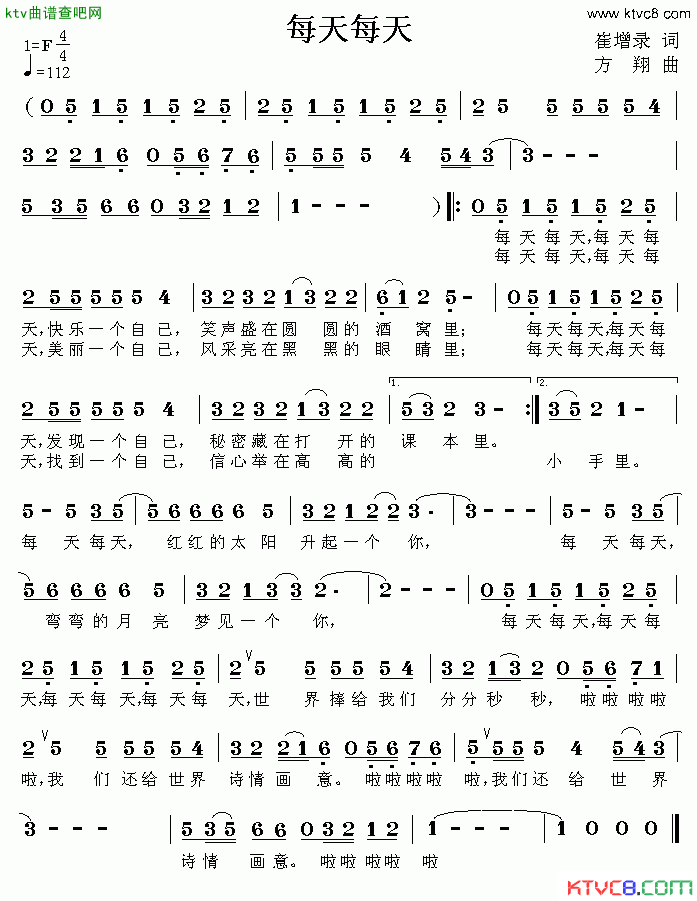 ktv曲谱查吧网
www.ktvc8.com
每天每天
1=F 4/4
♩=112
崔增录 词
方 翔 曲
( 0 5 1 5 1 5 2 5 | 2 5 1 5 1 5 2 5 | 2 5 5 5 5 5 4 |
3 2 2 1 6 0 5 6 7 6 | 5 5 5 5 4 5 4 3 | 3 - - - |
5 3 5 6 6 0 3 2 1 2 | 1 - - - ) ‖: 0 5 1 5 1 5 2 5 |
每 天 每 天,每 天 每
每 天 每 天,每 天 每
2 5 5 5 5 5 4 | 3 2 3 2 1 3 3 2 2 | 6 1 2 5 - | 0 5 1 5 1 5 2 5 |
天,快 乐 一 个 自 己, 笑 声 盛 在 圆 圆 的 酒 窝 里; 每 天 每 天,每 天 每
天,美 丽 一 个 自 己, 风 采 亮 在 黑 黑 的 眼 睛 里; 每 天 每 天,每 天 每
2 5 5 5 5 5 4 | 3 2 3 2 1 3 2 2 | 1. 5 3 2 3 - :‖ 2. 3 5 2 1 - |
天,发 现 一 个 自 己, 秘 密 藏 在 打 开 的 课 本 里。
天,找 到 一 个 自 己, 信 心 举 在 高 高 的 小 手 里。
5 - 5 3 5 | 5 6 6 6 6 5 | 3 2 1 2 2 3 · | 3 - - - | 5 - 5 3 5 |
每 天 每 天, 红 红 的 太 阳 升 起 一 个 你, 每 天 每 天,
5 6 6 6 6 5 | 3 2 1 3 3 2 · | 2 - - - | 0 5 1 5 1 5 2 5 |
弯 弯 的 月 亮 梦 见 一 个 你, 每 天 每 天,每 天 每
2 5 1 5 1 5 2 5 | 2 ∨ 5 5 5 5 5 4 | 3 2 1 3 2 0 5 6 7 1 |
天,每 天 每 天,每 天 每 天,世 界 捧 给 我 们 分 分 秒 秒, 啦 啦 啦 啦
2 ∨ 5 5 5 5 5 4 | 3 2 2 1 6 0 5 6 7 6 | 5 ∨ 5 5 5 4 5 4 3 |
啦,我 们 还 给 世 界 诗 情 画 意。 啦 啦 啦 啦 啦,我 们 还 给 世 界
3 - - - | 5 3 5 6 6 0 3 2 1 2 | 1 - - - | 1 0 0 0 ‖
诗 情 画 意。 啦 啦 啦 啦 啦
KTVC8.com